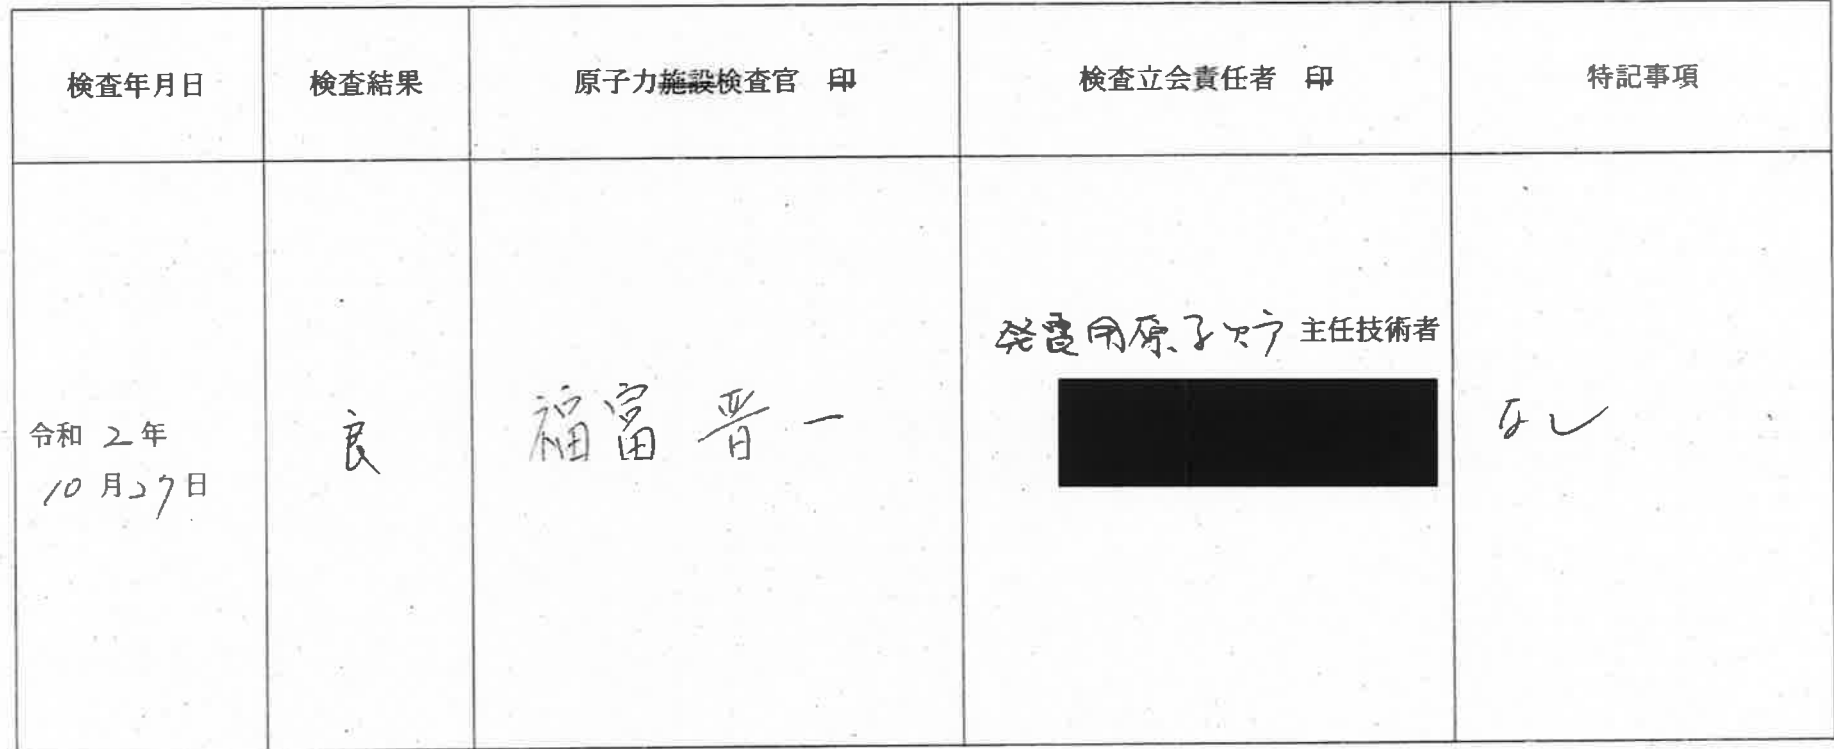 検査年月日
検査結果
原子力施設検査官 印
検査立会責任者 印
特記事項
令和 2年
10月27日
良
福富 晋一
発電用原子炉 主任技術者
なし